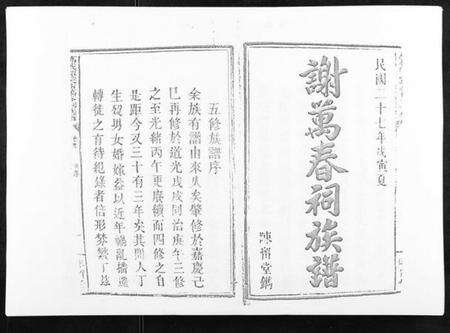 民國二十七年戊寅夏
謝萬春祠族譜
陳留堂鐫
五修族譜序
矣族有譜由來久矣肇修於嘉慶己
巳再修於道光戊戌同治庚午三修
之至光緒丙午更展續而四修之自
是距今又三十有三年矣其間人丁
生殁男女婚嫁益以近年禍亂播遷
轉徙之有待紀錄者倍形禁繁丁茲